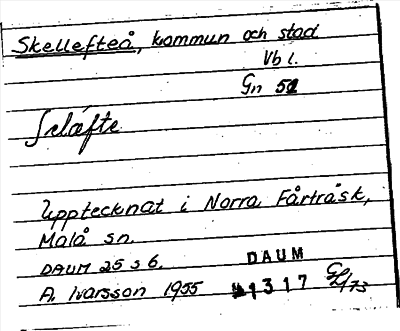 Skellefteå, kommun och stad
Vb l.
Gn 51
Upptecknat i Norra Fårträsk,
Malå sn.
DAUM 25 s 6.
DAUM
A. Ivarsson 1955
1317